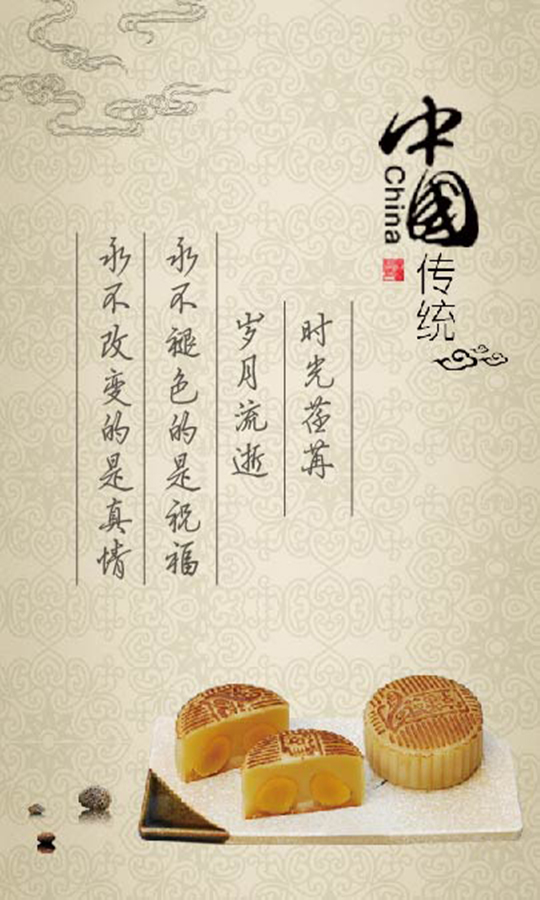 中国
China
传统
时光荏苒
岁月流逝
永不褪色的是祝福
永不改变的是真情